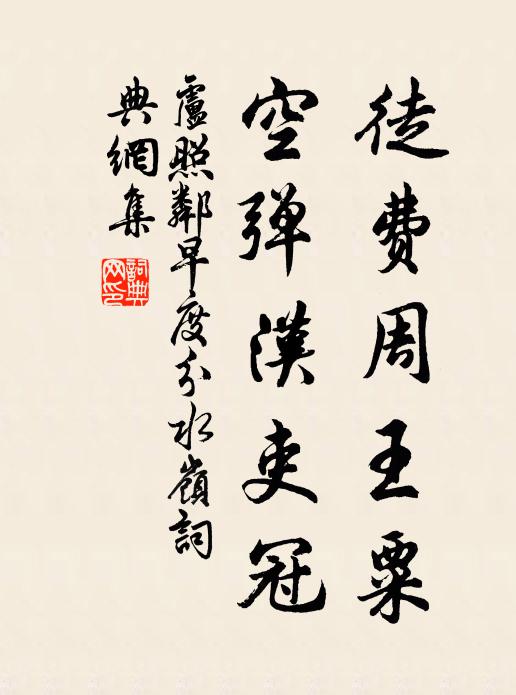 徒费周王粟
空弹漢吏冠
盧照鄰早度分水嶺詞
典網集
詞典
网印